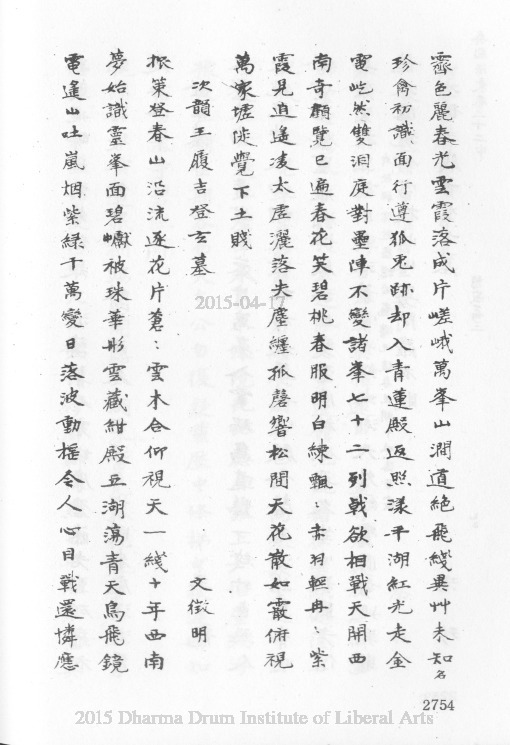 霽色麗春光雲霞落成片嵯峨萬峯山澗道絕飛綫異艸未知名
珍禽初識面行遵狐兎跡却入青蓮殿返照漾平湖紅光走金
電屹然雙洞庭對壘陣不變諸峯七十二列戟欲相戰天開西
南奇顧覽已遍春花笑碧桃春服明白練飄〻赤羽輕冉〻紫
霞見逍遙凌太虛灑落失塵纏孤磬響松間天花散如霰俯視
萬家墟徙覺下土賤
次韻王履吉登玄墓
文徵明
振策登春山沿流逐花片蒼〻雲木合仰視天一綫十年西南
夢始識靈峯面碧巘被珠華彤雲藏紺殿五湖蕩青天鳥飛鏡
電遙山吐嵐烟紫綠千萬變日落波動搖令人心目戰還憐應
2015-04-17
2754
2015 Dharma Drum Institute of Liberal Arts